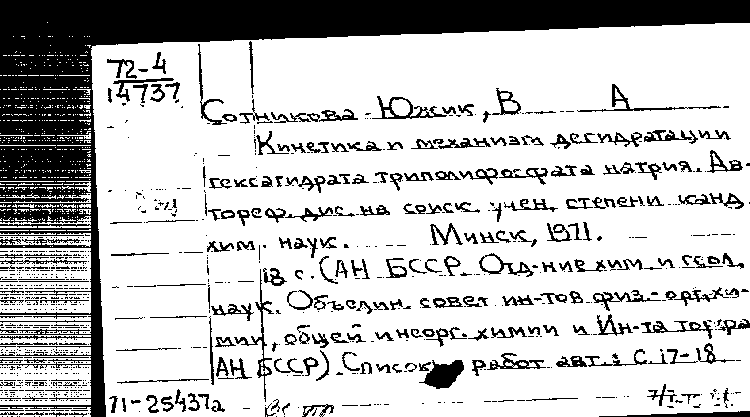 72-4
14737
Сотникова-Южик, В А
Кинетика и механизм дегидратации
гексагидрата триполифосфата натрия. Ав-
тореф. дис. на соиск. учен. степени канд.
хим. наук. Минск, 1971.
18 с. (АН БССР. Отд-ние хим. и геол.
наук. Объедин. совет ин-тов физ.-орг. хи-
мии, общей и неорг. химии и Ин-та торфа
АН БССР). Список работ авт.: С. 17-18.
71-25437а